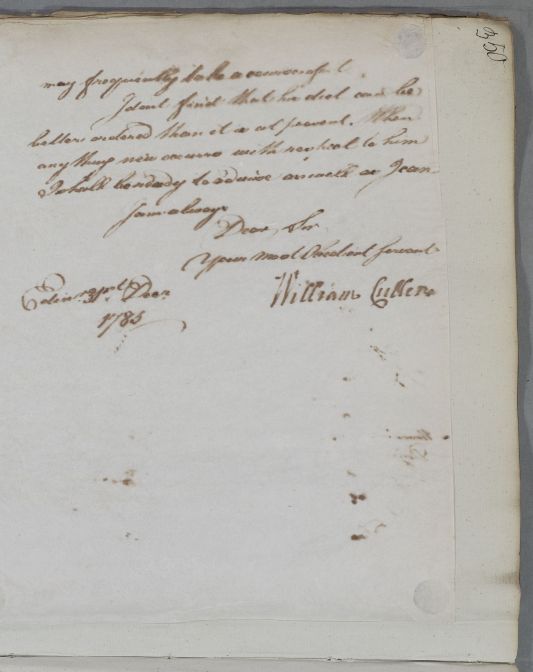 350
may frequently take a
I dont find that his diet can be
better ordered than it is at present. When
any thing new occurrs with respect to him
I shall be ready to advise as as I can
I am always
Dear Sir
Your most Obedient Servant
William Cullen
Edinr. 31st. Decr.
1785